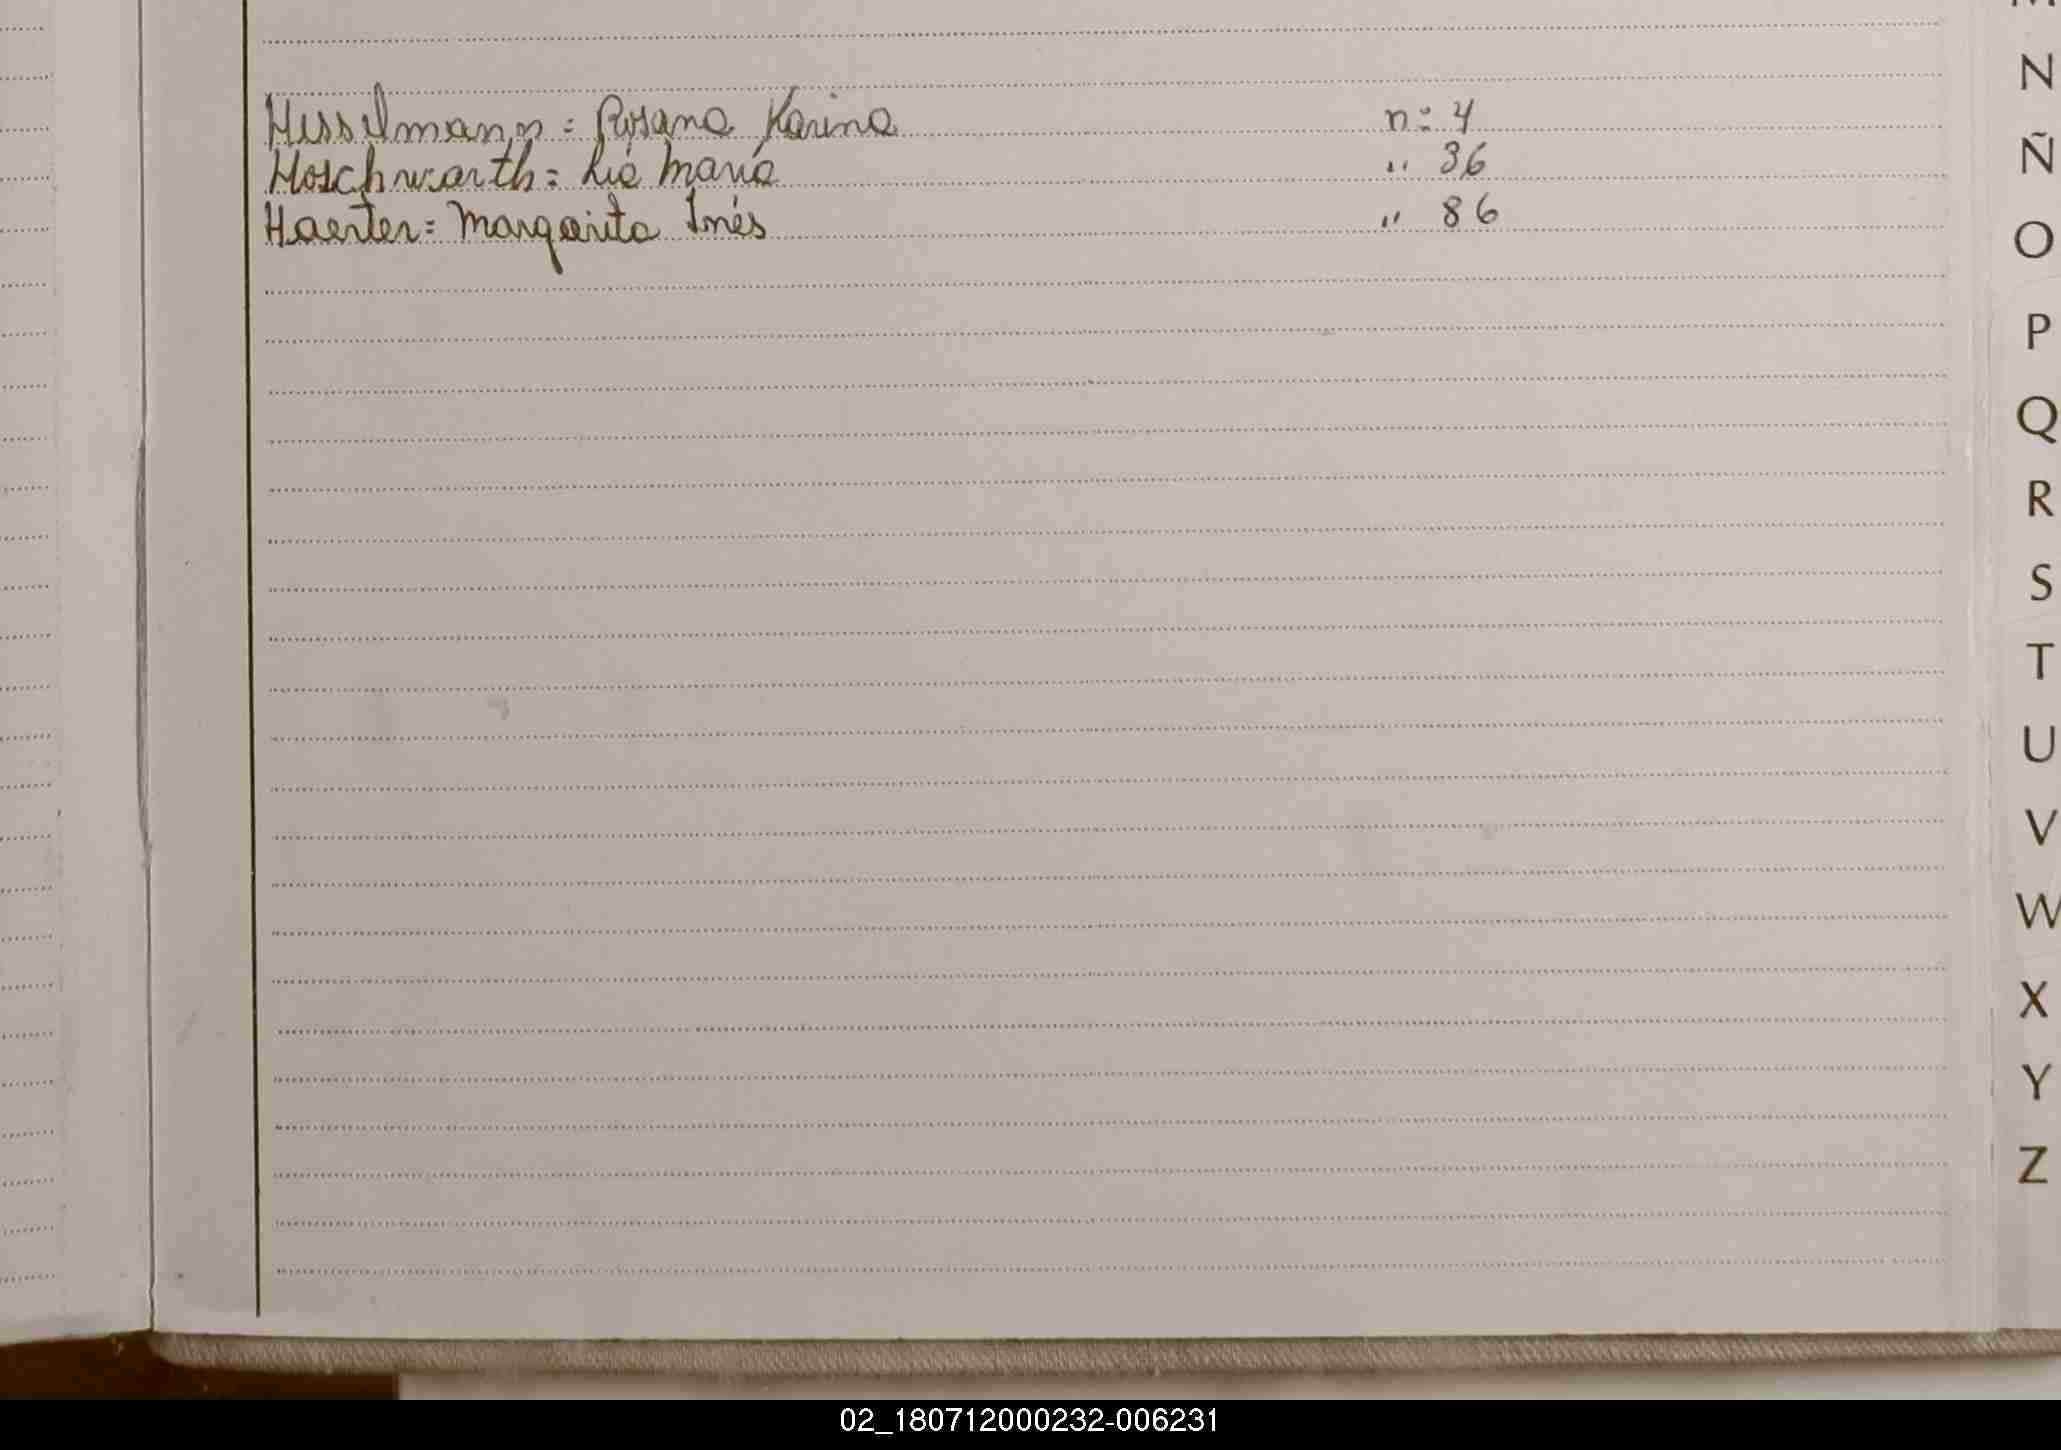 Hesselmann = Rosana Karina n: 4
Hoschwarth = Lía María " 36
Haerter = Margarita Inés " 86
N
Ñ
O
P
Q
R
S
T
U
V
W
X
Y
Z
02_180712000232-006231